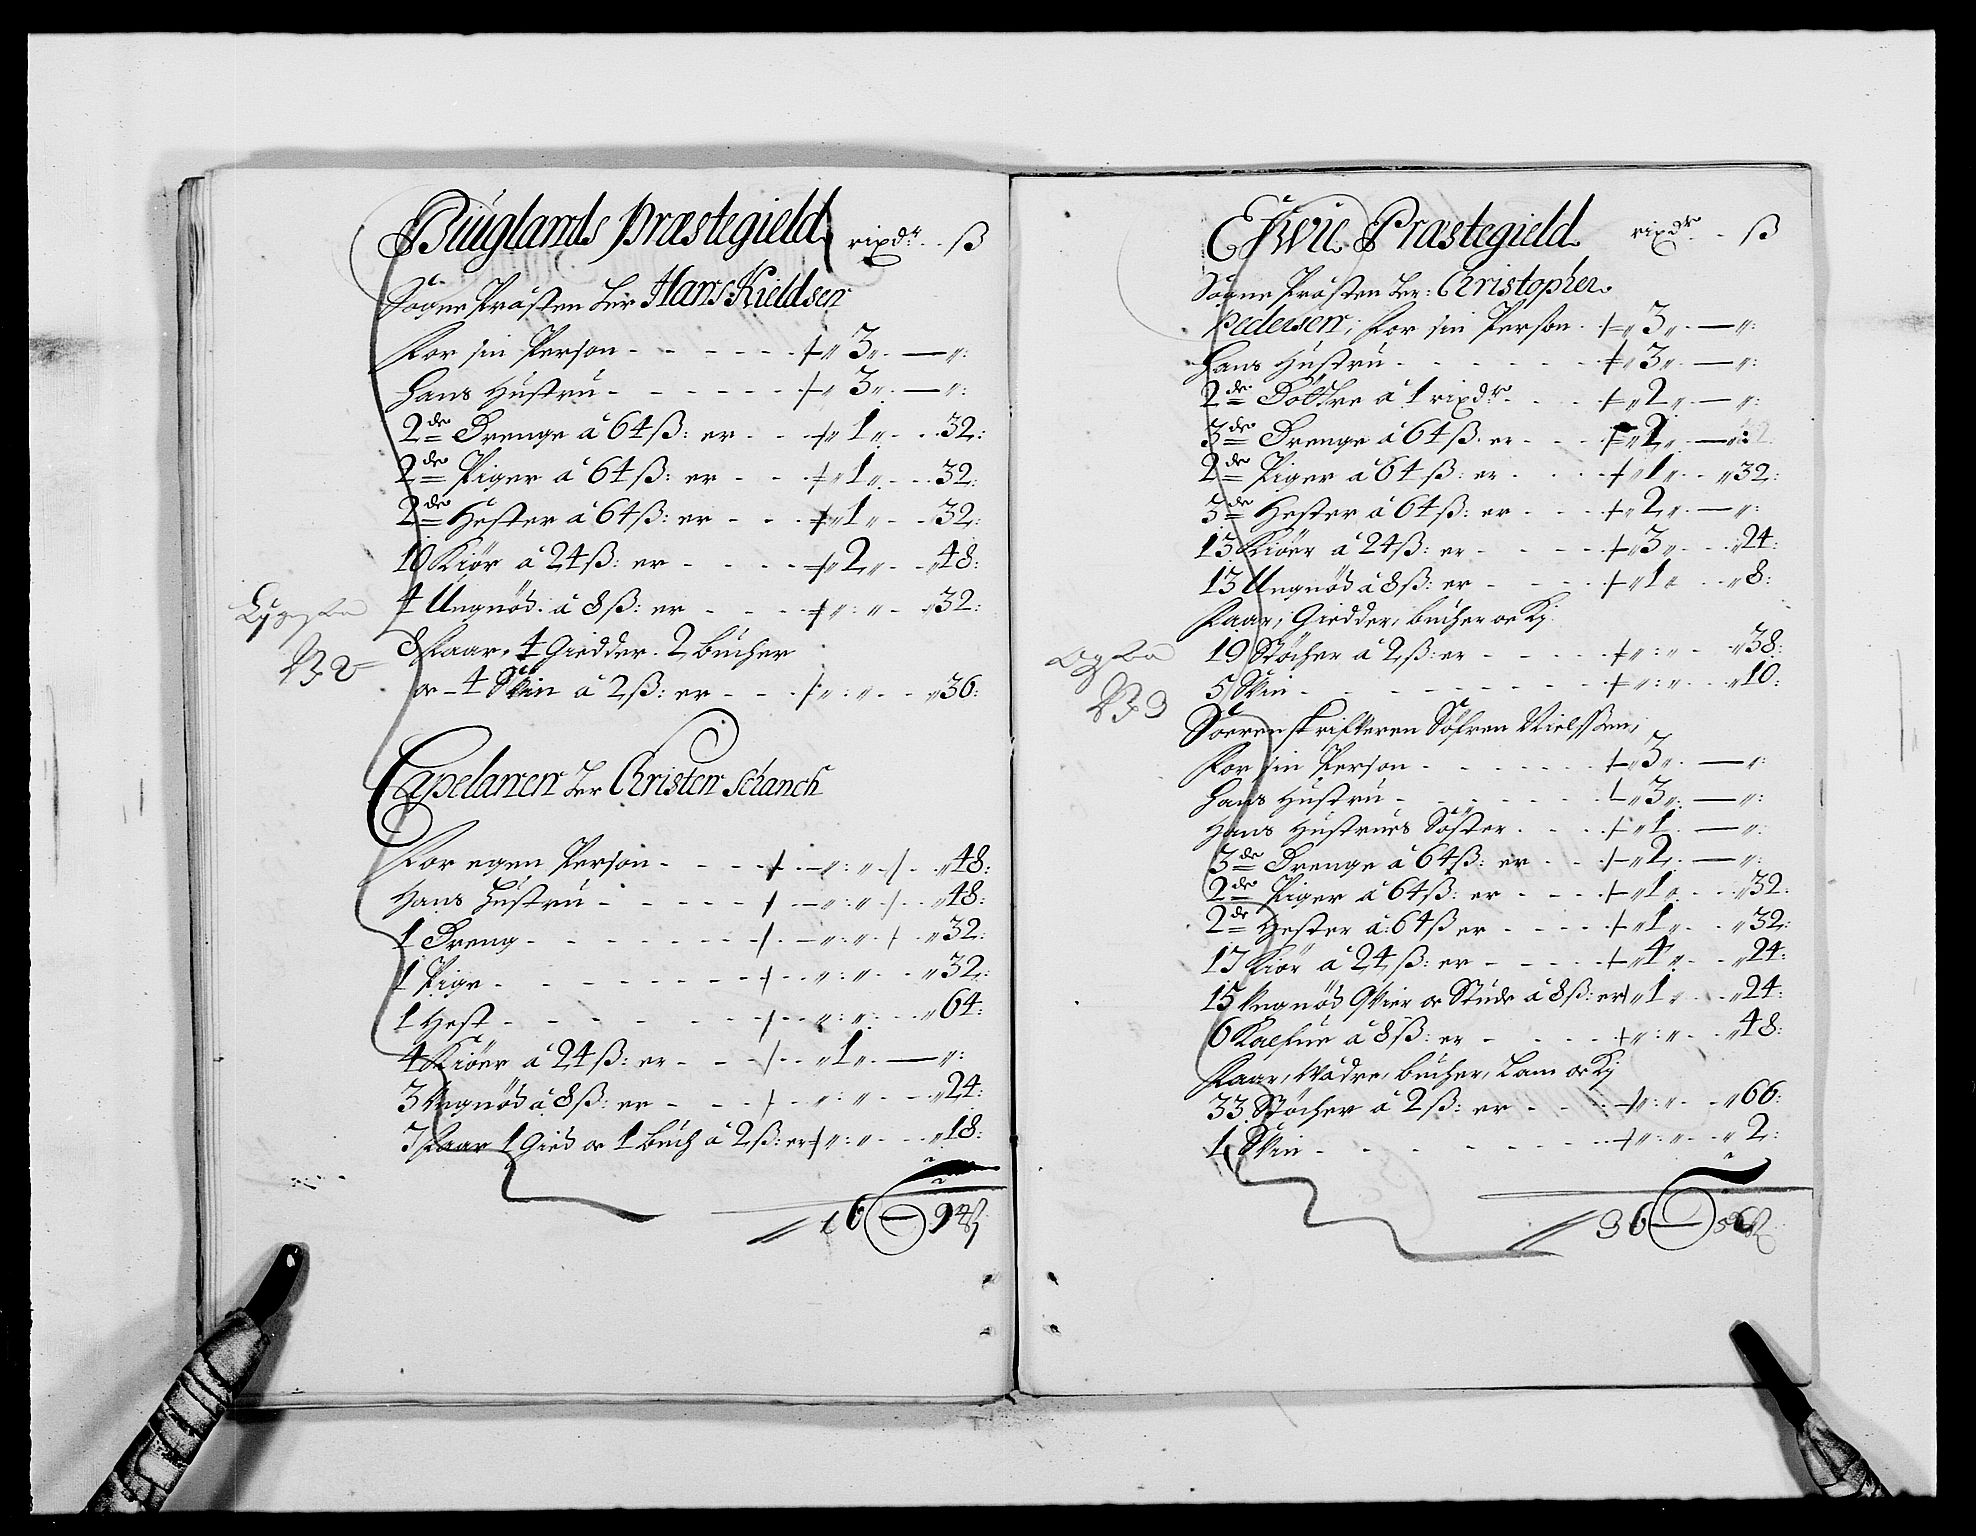 Biuglands Præstegield rixdr. ß
Sogne Præsten Her Hans Kieldsen
For sin Person - - - 3 — „:
Hans Hustru - - - 3 — „:
2de Drenge à 64 ß: er - - 1 - 32:
2de Piger à 64 ß: er - - 1 - 32:
2de Hester à 64 ß: er - - 1 - 32:
10 Kiör à 24 ß: er - - 2 - 48:
4 Ungnöd à 8 ß: er - - „:„ - 32:
8 Faar, 4 Giedder. 2 Bucher
oc 4 Skin à 2 ß: er - - „:„ - 36:
No 2
Capelanen Her Christen Schanch
For egen Person - - - „:„ - 48:
Hans Hustru - - - „:„ - 48:
1 Dreng - - - „:„ - 32:
1 Pige - - - „:„ - 32:
1 Hest - - - „:„ - 64:
4 Kiöer à 24 ß: er - - 1 — „:
3 Ungnöd à 8 ß: er - - „:„ - 24:
7 Faar 1 Gied oc 1 Buch à 2 ß: er „:„ - 18:
16 — 94 ß
Efwie Præstegield rixdr - ß
Sogne Præsten Her: Christopher
Pedersen, For sin Person - 3 — „:
Hans Hustru - - - 3 — „:
2de Döttre à 1 rixdr - - 2 — „:
3de Drenge à 64 ß. er - - 2 — „:
2de Piger à 64 ß: er - - 1 - 32:
3de Hester à 64 ß: er - - 2 — „:
13 Kiöer à 24 ß: er - - 3 - 24:
13 Ungnöd à 8 ß: er - - 1 - 8:
Faar, Giedder, Bucher oc Kj
19 Stöcher à 2 ß: er - - „:„ - 38:
5 Skin - - - „:„ - 10:
No 3
Sorrenskrifveren Söfren Nielssön,
For sin Person - - - 3 — „:
Hans Hustru - - - 3 — „:
Hans Hustrues Söster - - 1 — „:
3de Drenge à 64 ß: er - - 2 — „:
2de Piger à 64 ß: er - - 1 - 32:
2de Hester à: 64 ß er - - 1 - 32:
17 Kiör à 24 ß: er - - 4 - 24:
15 Ungnöd Qvier oc Stude à 8 ß: er 1 - 24:
6 Kalfue à 8 ß: er - - „:„ - 48:
Faar, Wädre, Bucher, Lam oc Kj
33 Stöcher à 2 ß: er - - „:„ - 66:
1 Skin - - - „:„ - 2:
36 — 56 ß